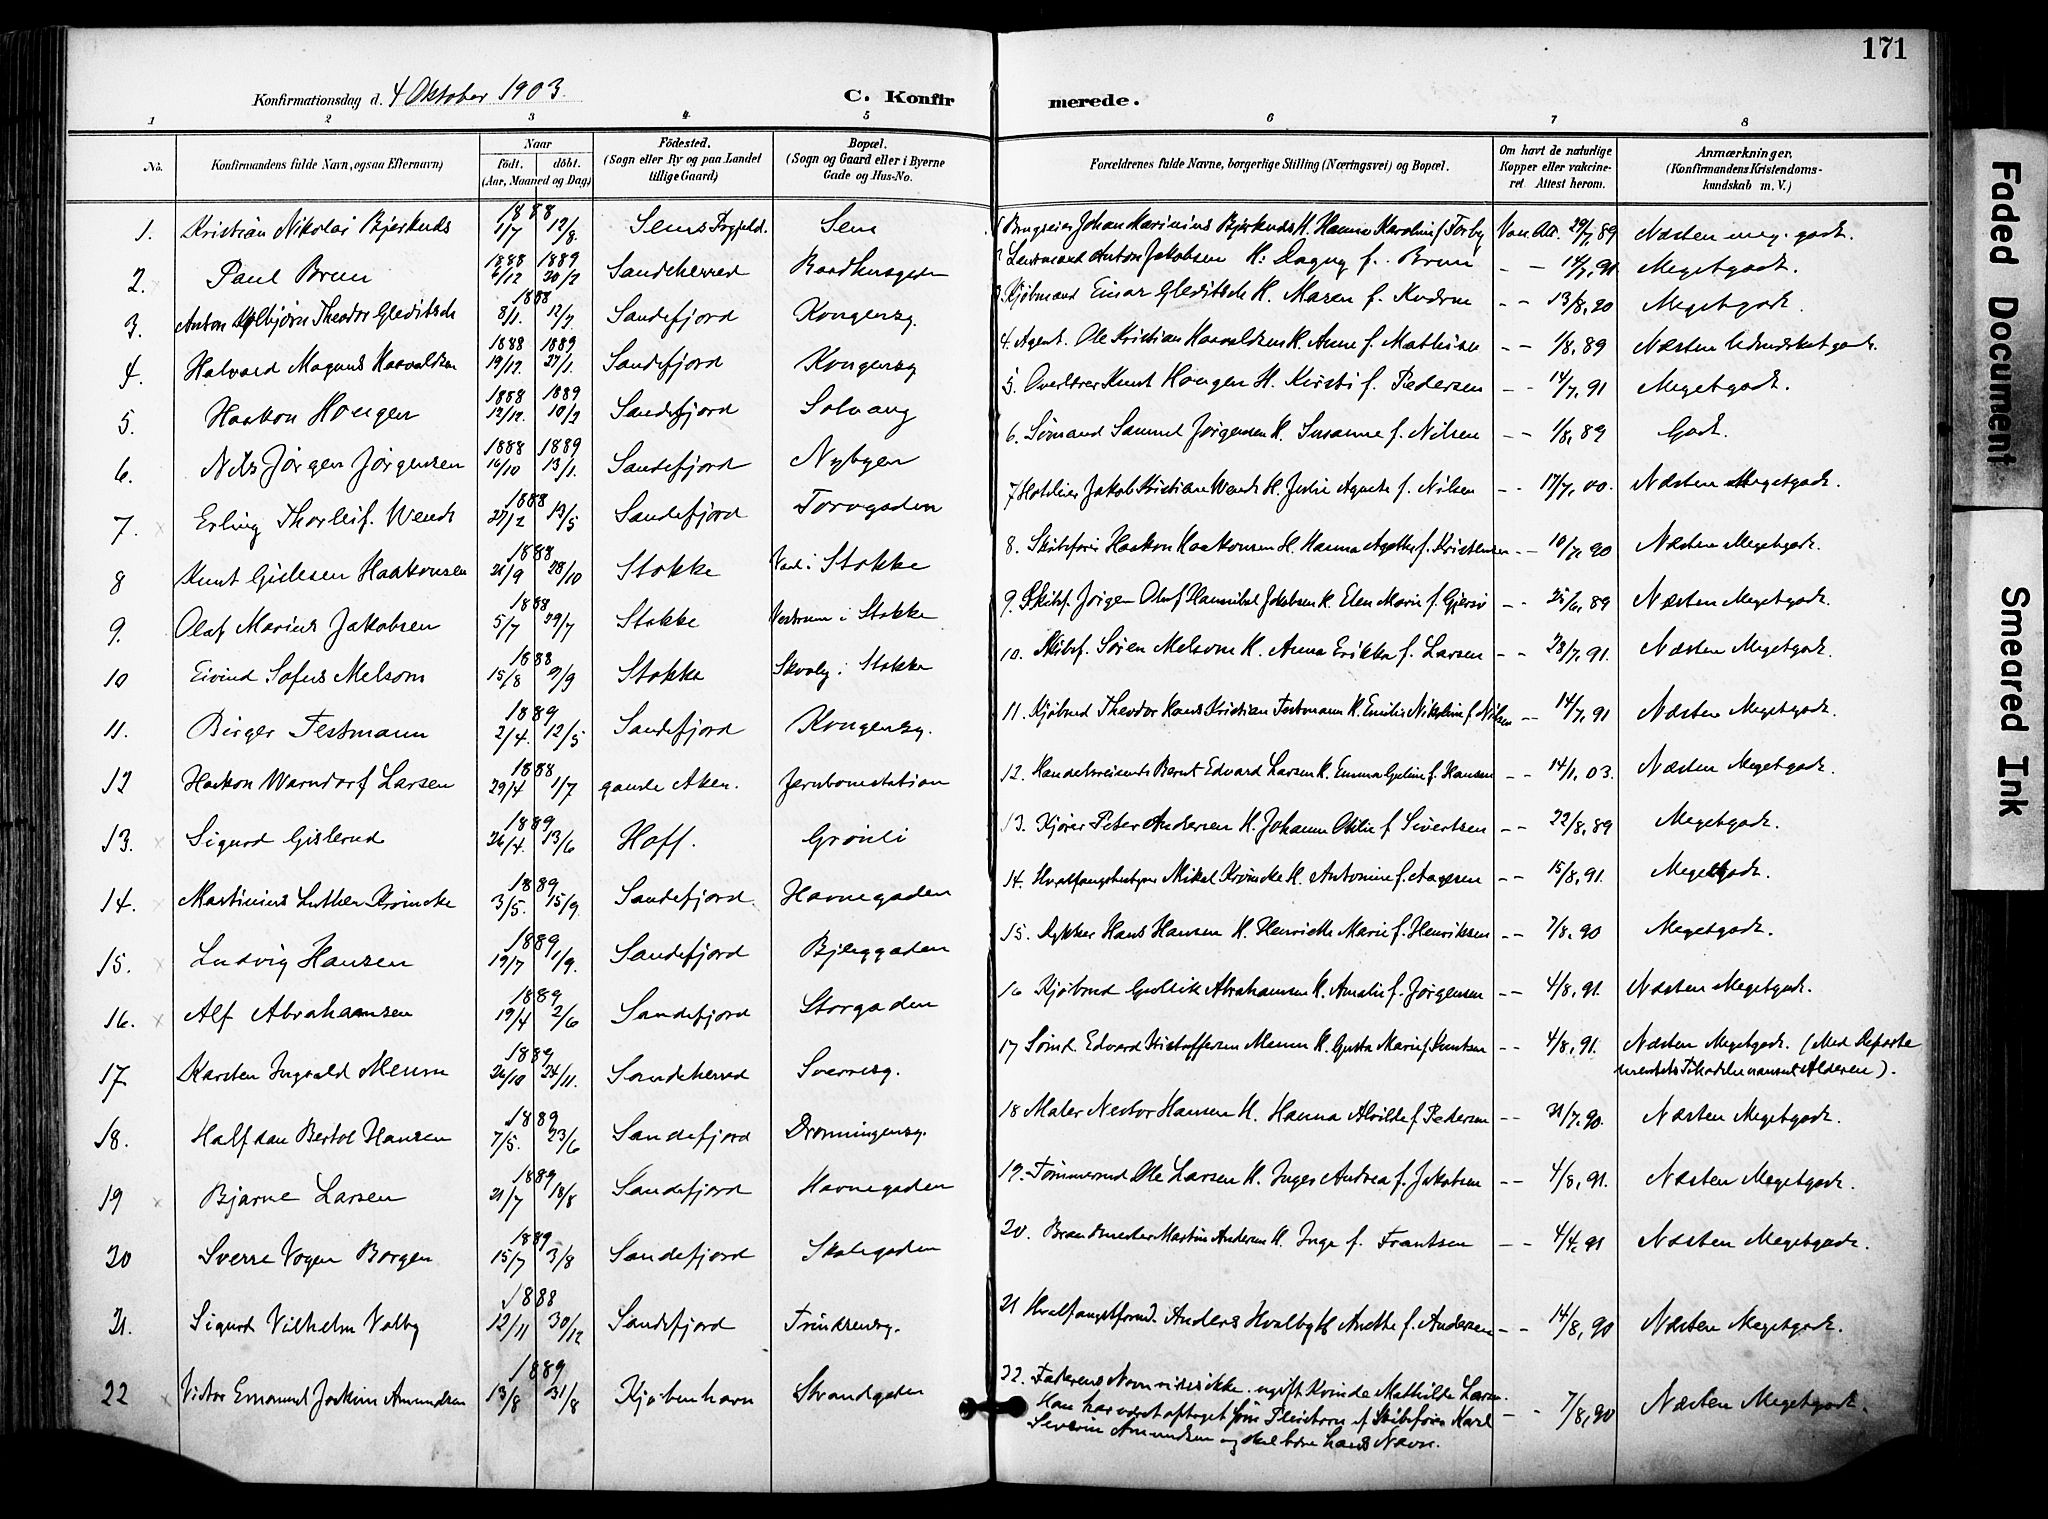 171
Konfirmationsdag d. 4 Oktober 1903.
C. Konfirmerede.
1 2 3 4 5 6 7 8
No. Konfirmandens fulde Navn, ogsaa Efternavn) Naar födt. döbt. (Aar, Maaned og Dag) Födested. (Sogn eller By og paa Landet tillige Gaard) Bopæl. (Sogn og Gaard eller i Byerne Gade og Hus-No. Forældrenes fulde Navne, borgerlige Stilling (Næringsvei) og Bopæl. Om havt de naturlige Kopper eller vakcineret. Attest herom. Anmærkninger. (Konfirmandens Kristendomskundskab m. V.)
1. Kristian Nikolai Bjerknds 1888 1/7 12/8. Sem Johan Marinius 29/7 89 Næsten meg. godt.
2. Paul Brun 1888 6/12 1889 20/2 Sandeherred Lensmand Anton Jakobsen H. Dagny f. Brun 14/7, 91 Megetgodt.
3. Anton Theodor Gleditsch 1888 8/1. 12/7 Sandefjord Kongensg. Kjöbmand Einar Gleditsch H. Maren f. 13/8, 90 Megetgodt.
4. Halvard Magnus Haavaldsen 1888 19/12. 1889 27/1. Sandefjord Kongensg 4. Agent. Ole Kristian Haavaldsen H. Anne f. Mathisen -- 1/8, 89 Næsten Udmærketgodt.
5. Haakon Hougen 1888 12/12. 1889 10/2 Sandefjord Solvang 5. Overlærer Knut Hougen H. Kirsti f. Pedersen -- 14/7, 91 Megetgodt.
6. Nils Jørgen Jørgensen 1888 16/10 1889 13/1. Sandefjord Nybyen 6. Sømand Samuel Jørgensen H. Susanne f. Nilsen -- 1/8, 89 Godt.
7. Erling Thorleif. Wendt 1888 27/2 13/5 Sandefjord Torvgaden 7 Jakob Kristian Wendt H. Agnete f. Nilsen -- 17/7, 00. Næsten Megetgodt.
8 Knut Haakonsen 1888 21/9 28/10 Stokke i Stokke 8. Skibsfører Haakon Haakonsen H. Hanna Agathe f. Kristensen -- 10/7, 90 Næsten Megetgodt.
9. Olaf Marius Jakobsen 1888 5/7 29/7 Stokke Vestrum i Stokke 9. Skibsf. Jørgen Oluf Hannibal Jakobsen H. Elen Marie f. -- 25/6, 89 Næsten Megetgodt.
10 Eivind Sofus Melsom 1888 15/8 9/9 Stokke i Stokke 10. Skibsf. Søren Melsom H. Anna Erikka f. Larsen -- 28/7, 91. Næsten Megetgodt.
11. Birger Festmann 1889 2/4. 12/5 Sandefjord Kongensg. 11. Kjøbmd Theodor Hans Kristian Festmann H. Emilie Nikoline f. Nilsen -- 14/7, 91 Næsten Megetgodt.
12 Haakon Warndorf Larsen 1888 29/4 1/7 gamle Aker. Jernbanestation 12. Bernt Edvard Larsen H. Emma f. Hansen -- 14/1, 03. Næsten Megetgodt.
13. Sigurd Gislerud 1889 26/4. 13/6 Hoff. Grønli 13. Kjører Peter Andersen H. Johanne Otilie f. Sivertsen -- 22/8, 89 Megetgodt.
14. Martinius Luther Krøincke 1889 3/5. 15/9. Sandefjord. Havnegaden 14. Hvalfangstbestyrer Mikal H. Antonine f. Aagesen -- 15/8, 91. Megetgodt.
15. Ludvig Hansen 1889 19/7 1/9. Sandefjord Bjerggaden 15. Dykker Hans Hansen H. Henriette Marie f. Henriksen -- 7/8, 90 Megetgodt.
16. Alf Abrahamsen 1889 19/4 2/6 Sandefjord Storgaden 16 Kjøbmd Gullik Abrahamsen H. Amalie f. Jørgensen -- 4/8, 91. Næsten Megetgodt.
17 Karsten Ingvald Menm 1889 26/10 24/11. Sandeherred 17 Sømd. Edvard Kristoffersen H. Gusta Marie f. Knutsen -- 4/8, 91. Næsten Megetgodt. (Med Departementets Alderen).
18. Halfdan Bertol Hansen 1889 7/5. 23/6 Sandefjord Dronningensg. 18 Maler Nestor Hansen H. Hanna Alvilde f. Pedersen -- 21/7, 90. Næsten Megetgodt.
19 Bjarne Larsen 1889 21/7 18/8 Sandefjord Havnegaden 19. Tømmermd Ole Larsen H. Inger Andrea f. Jakobsen -- 4/8, 91. Næsten Megetgodt.
20 Sverre Vogen Borgen 1889 15/7 3/8 Sandefjord Skolegaden 20. Brandmester Martin Andersen H. Inga f. Frantsen -- 4/4, 91 Næsten Megetgodt.
21. Sigurd Vilhelm Valby 1888 12/11 30/12 Sandefjord 21 Hvalfangstformd. Anders Hvalby H. Anette f. Andersen -- 14/8, 90 Næsten Megetgodt.
22 Victor Emanuel Joakim Amundsen 1889 13/8 31/8 Kjøbenhavn Strandgaden 22. Faderens Navn vides ikke. ugift Kvinde Mathilde Larsen. -- 7/8, 90 Næsten Megetgodt.
Han har været optaget som Pleiebarn af Skibsfører Karl
Severin Amundsen og skal bære hans Navn.
Faded Document
Smeared Ink